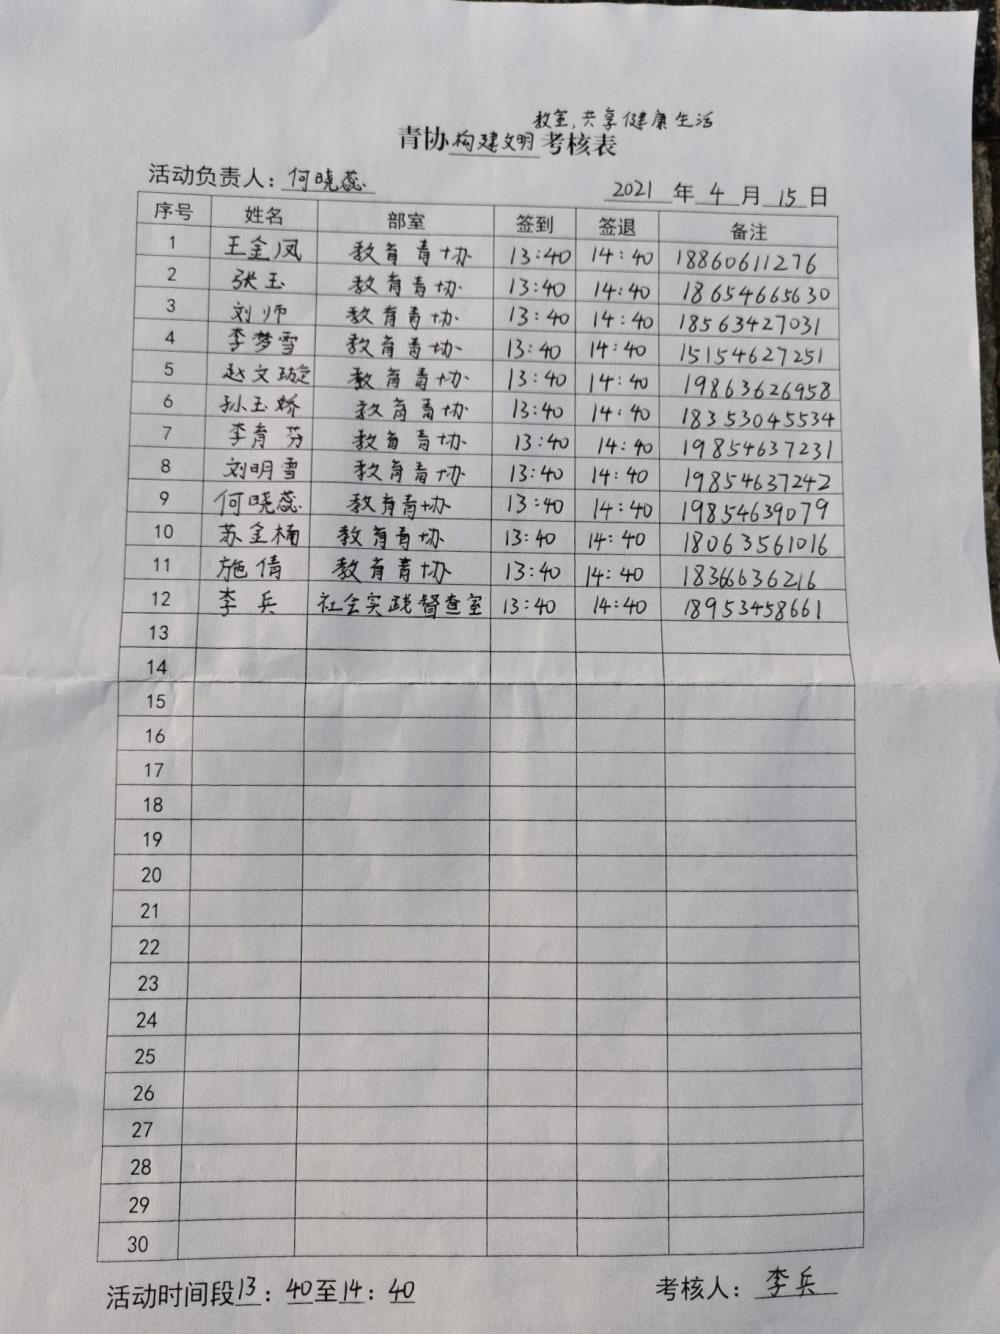 教室,共享健康生活
青协构建文明考核表
活动负责人：何晓蕊 2021年4月15日
序号 姓名 部室 签到 签退 备注
1 王金凤 教育青协 13:40 14:40 18860611276
2 张玉 教育青协 13:40 14:40 18654665630
3 刘师 教育青协 13:40 14:40 18563427031
4 李梦雪 教育青协 13:40 14:40 15154627251
5 赵文璇 教育青协 13:40 14:40 19863626958
6 孙玉娇 教育青协 13:40 14:40 18353045534
7 李育芬 教育青协 13:40 14:40 19854637231
8 刘明雪 教育青协 13:40 14:40 19854637242
9 何晓蕊 教育青协 13:40 14:40 19854639079
10 苏金楠 教育青协 13:40 14:40 18063561016
11 施倩 教育青协 13:40 14:40 18366636216
12 李兵 社会实践督查室 13:40 14:40 18953458661
13
14
15
16
17
18
19
20
21
22
23
24
25
26
27
28
29
30
活动时间段13：40至14：40 考核人：李兵